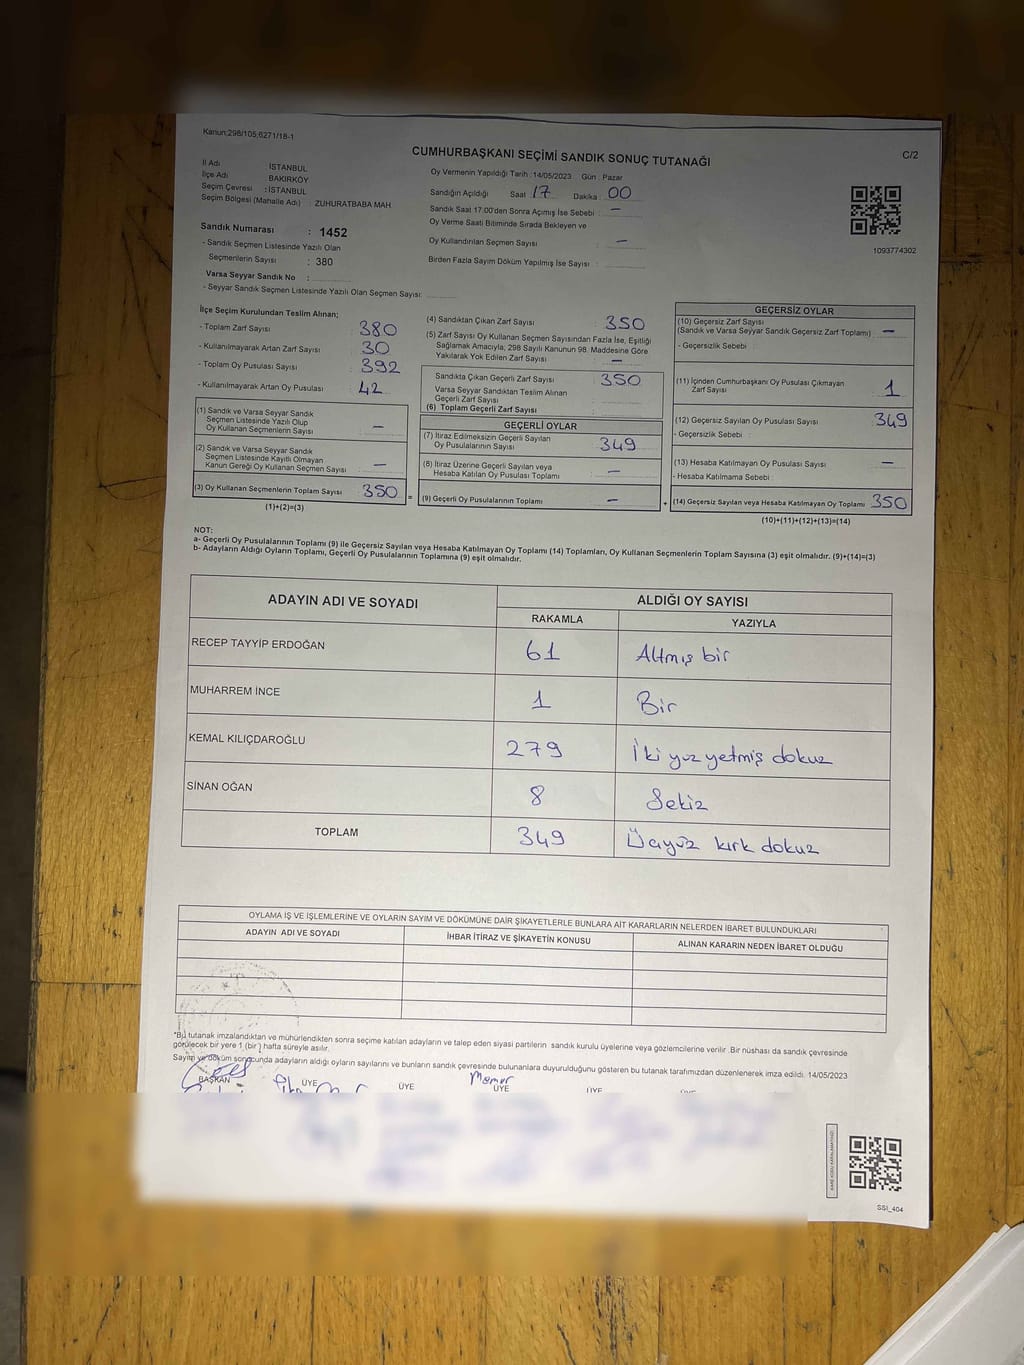 Kanun;298/105;6271/18-1
CUMHURBAŞKANI SEÇİMİ SANDIK SONUÇ TUTANAĞI
C/2
İl Adı İSTANBUL
İlçe Adı BAKIRKÖY
Seçim Çevresi : İSTANBUL
Seçim Bölgesi (Mahalle Adı) : ZUHURATBABA MAH
Sandık Numarası : 1452
- Sandık Seçmen Listesinde Yazılı Olan
Seçmenlerin Sayısı : 380
Varsa Seyyar Sandık No :
- Seyyar Sandık Seçmen Listesinde Yazılı Olan Seçmen Sayısı:
Oy Vermenin Yapıldığı Tarih :14/05/2023 Gün : Pazar
Sandığın Açıldığı Saat : 17 Dakika : 00
Sandık Saat 17.00'den Sonra Açımış İse Sebebi : —
Oy Verme Saati Bitiminde Sırada Bekleyen ve
Oy Kullandırılan Seçmen Sayısı : —
Birden Fazla Sayım Döküm Yapılmış İse Sayısı :
1093774302
İlçe Seçim Kurulundan Teslim Alınan;
- Toplam Zarf Sayısı : 380
- Kullanılmayarak Artan Zarf Sayısı : 30
- Toplam Oy Pusulası Sayısı : 392
- Kullanılmayarak Artan Oy Pusulası : 42
(1) Sandık ve Varsa Seyyar Sandık
Seçmen Listesinde Yazılı Olup
Oy Kullanan Seçmenlerin Sayısı : —
(2) Sandık ve Varsa Seyyar Sandık
Seçmen Listesinde Kayıtlı Olmayan
Kanun Gereği Oy Kullanan Seçmen Sayısı : —
(3) Oy Kullanan Seçmenlerin Toplam Sayısı : 350
(1)+(2)=(3)
(4) Sandıktan Çıkan Zarf Sayısı : 350
(5) Zarf Sayısı Oy Kullanan Seçmen Sayısından Fazla İse, Eşitliği
Sağlamak Amacıyla, 298 Sayılı Kanunun 98. Maddesine Göre
Yakılarak Yok Edilen Zarf Sayısı : —
Sandıkta Çıkan Geçerli Zarf Sayısı : 350
Varsa Seyyar Sandıktan Teslim Alınan
Geçerli Zarf Sayısı :
(6) Toplam Geçerli Zarf Sayısı :
GEÇERLİ OYLAR
(7) İtiraz Edilmeksizin Geçerli Sayılan
Oy Pusulalarının Sayısı : 349
(8) İtiraz Üzerine Geçerli Sayılan veya
Hesaba Katılan Oy Pusulası Toplamı : —
= (9) Geçerli Oy Pusulalarının Toplamı : —
GEÇERSİZ OYLAR
(10) Geçersiz Zarf Sayısı
(Sandık ve Varsa Seyyar Sandık Geçersiz Zarf Toplamı) : —
- Geçersizlik Sebebi :
(11) İçinden Cumhurbaşkanı Oy Pusulası Çıkmayan
Zarf Sayısı : 1
(12) Geçersiz Sayılan Oy Pusulası Sayısı : 349
- Geçersizlik Sebebi :
(13) Hesaba Katılmayan Oy Pusulası Sayısı : —
- Hesaba Katılmama Sebebi :
+ (14) Geçersiz Sayılan veya Hesaba Katılmayan Oy Toplamı : 350
(10)+(11)+(12)+(13)=(14)
NOT:
a- Geçerli Oy Pusulalarının Toplamı (9) ile Geçersiz Sayılan veya Hesaba Katılmayan Oy Toplamı (14) Toplamları, Oy Kullanan Seçmenlerin Toplam Sayısına (3) eşit olmalıdır. (9)+(14)=(3)
b- Adayların Aldığı Oyların Toplamı, Geçerli Oy Pusulalarının Toplamına (9) eşit olmalıdır.
ADAYIN ADI VE SOYADI ALDIĞI OY SAYISI
RAKAMLA YAZIYLA
RECEP TAYYİP ERDOĞAN 61 Altmış bir
MUHARREM İNCE 1 Bir
KEMAL KILIÇDAROĞLU 279 İki yüz yetmiş dokuz
SİNAN OĞAN 8 Sekiz
TOPLAM 349 Üçyüz kırk dokuz
OYLAMA İŞ VE İŞLEMLERİNE VE OYLARIN SAYIM VE DÖKÜMÜNE DAİR ŞİKAYETLERLE BUNLARA AİT KARARLARIN NELERDEN İBARET BULUNDUKLARI
ADAYIN ADI VE SOYADI İHBAR İTİRAZ VE ŞİKAYETİN KONUSU ALINAN KARARIN NEDEN İBARET OLDUĞU
*Bu tutanak imzalandıktan ve mühürlendikten sonra seçime katılan adayların ve talep eden siyasi partilerin sandık kurulu üyelerine veya gözlemcilerine verilir .Bir nüshası da sandık çevresinde
görülecek bir yere 1 (bir ) hafta süreyle asılır.
Sayım ve döküm sonucunda adayların aldığı oyların sayılarını ve bunların sandık çevresinde bulunanlara duyurulduğunu gösteren bu tutanak tarafımızdan düzenlenerek imza edildi. 14/05/2023
BAŞKAN ÜYE ÜYE Memur ÜYE ÜYE
SSİ_404